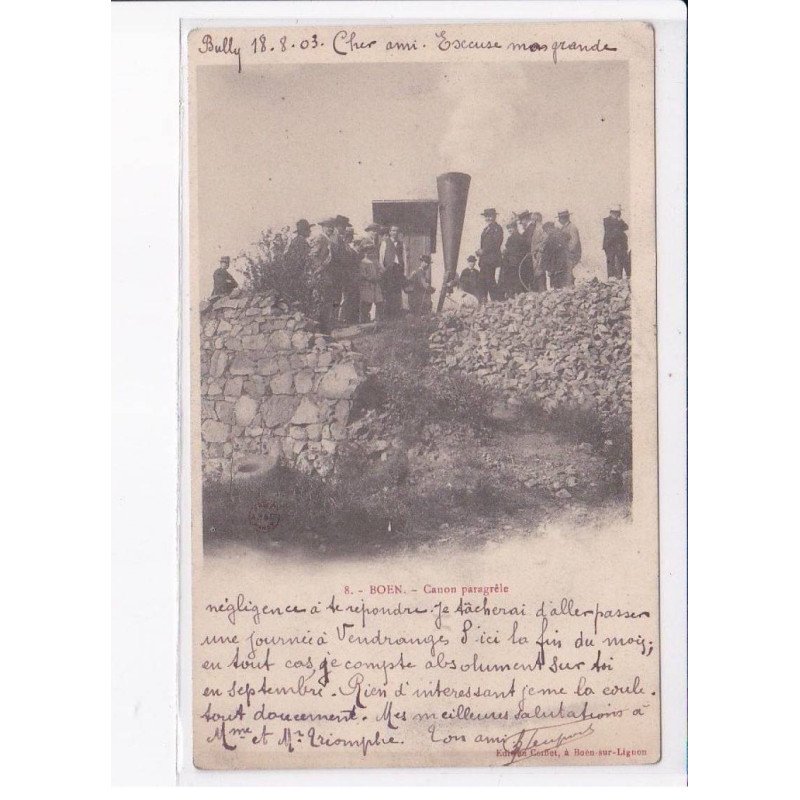 Bully 18.8.03. Cher ami. Excuse ma grande
8. - BOEN. - Canon paragrêle
négligence à te répondre. Je tâcherai d'aller passer
une journée à Vendranges d'ici la fin du mois;
en tout cas, je compte absolument sur toi
en septembre. Rien d'intéressant je me la coule
tout doucement. Mes meilleures salutations à
Mme et Mr Triomphe. Ton ami
à Boën-sur-Lignon